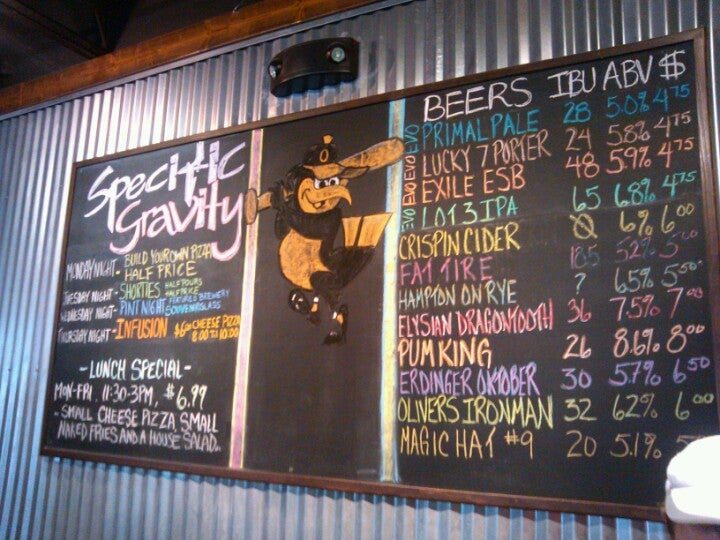 Specific
Gravity
MONDAY NIGHT - BUILD YOUR OWN PIZZA
HALF PRICE
TUESDAY NIGHT - SHORTIES HALF TOURS
HALF PRICE
WEDNESDAY NIGHT - PINT NIGHT FEATURED BREWERY
SOUVENIR GLASS
THURSTAY NIGHT - INFUSION $6 CHEESE PIZZA
8:00 TO 10:00
- LUNCH SPECIAL -
MON-FRI. 11:30-3PM, $6.99
SMALL CHEESE PIZZA, SMALL
NAKED FRIES AND A HOUSE SALAD..
O
BEERS IBU ABV $
EVO PRIMAL PALE 28 5.0% 4.75
EVO LUCKY 7 PORTER 24 5.8% 4.75
EVO EXILE ESB 48 5.9% 4.75
EVO LOT 3 IPA 65 6.8% 4.75
CRISPIN CIDER 0 6% 6.00
FAT TIRE 18.5 5.2%
HAMPTON ON RYE ? 6.5% 5.50
ELYSIAN DRAGONTOOTH 36 7.5% 7.00
PUMKING 26 8.6% 8.00
ERDINGER OKTOBER 30 5.7% 6.50
OLIVERS IRONMAN 32 6.2% 6.00
MAGIC HAT #9 20 5.1%